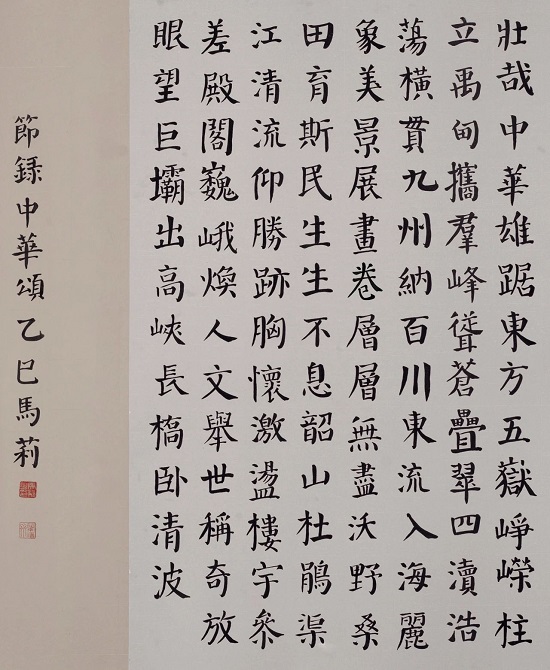 壯哉中華雄踞東方五嶽崢嶸柱
立禹甸攜羣峰聳蒼疊翠四瀆浩
蕩橫貫九州納百川東流入海麗
象美景展畫卷層層無盡沃野桑
田育斯民生生不息韶山杜鵑渠
江清流仰勝跡胸懷激盪樓宇參
差殿閣巍峨煥人文舉世稱奇放
眼望巨壩出高峽長橋卧清波
節錄中華頌乙巳馬莉